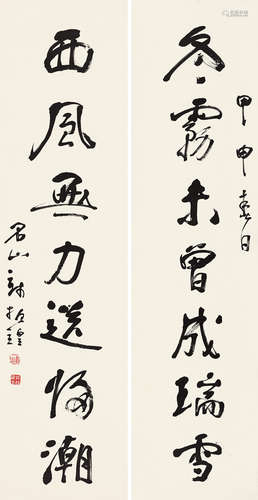 冬霧未曾成瑞雪
甲申春日
西風無力送潮
名山錢振鍠